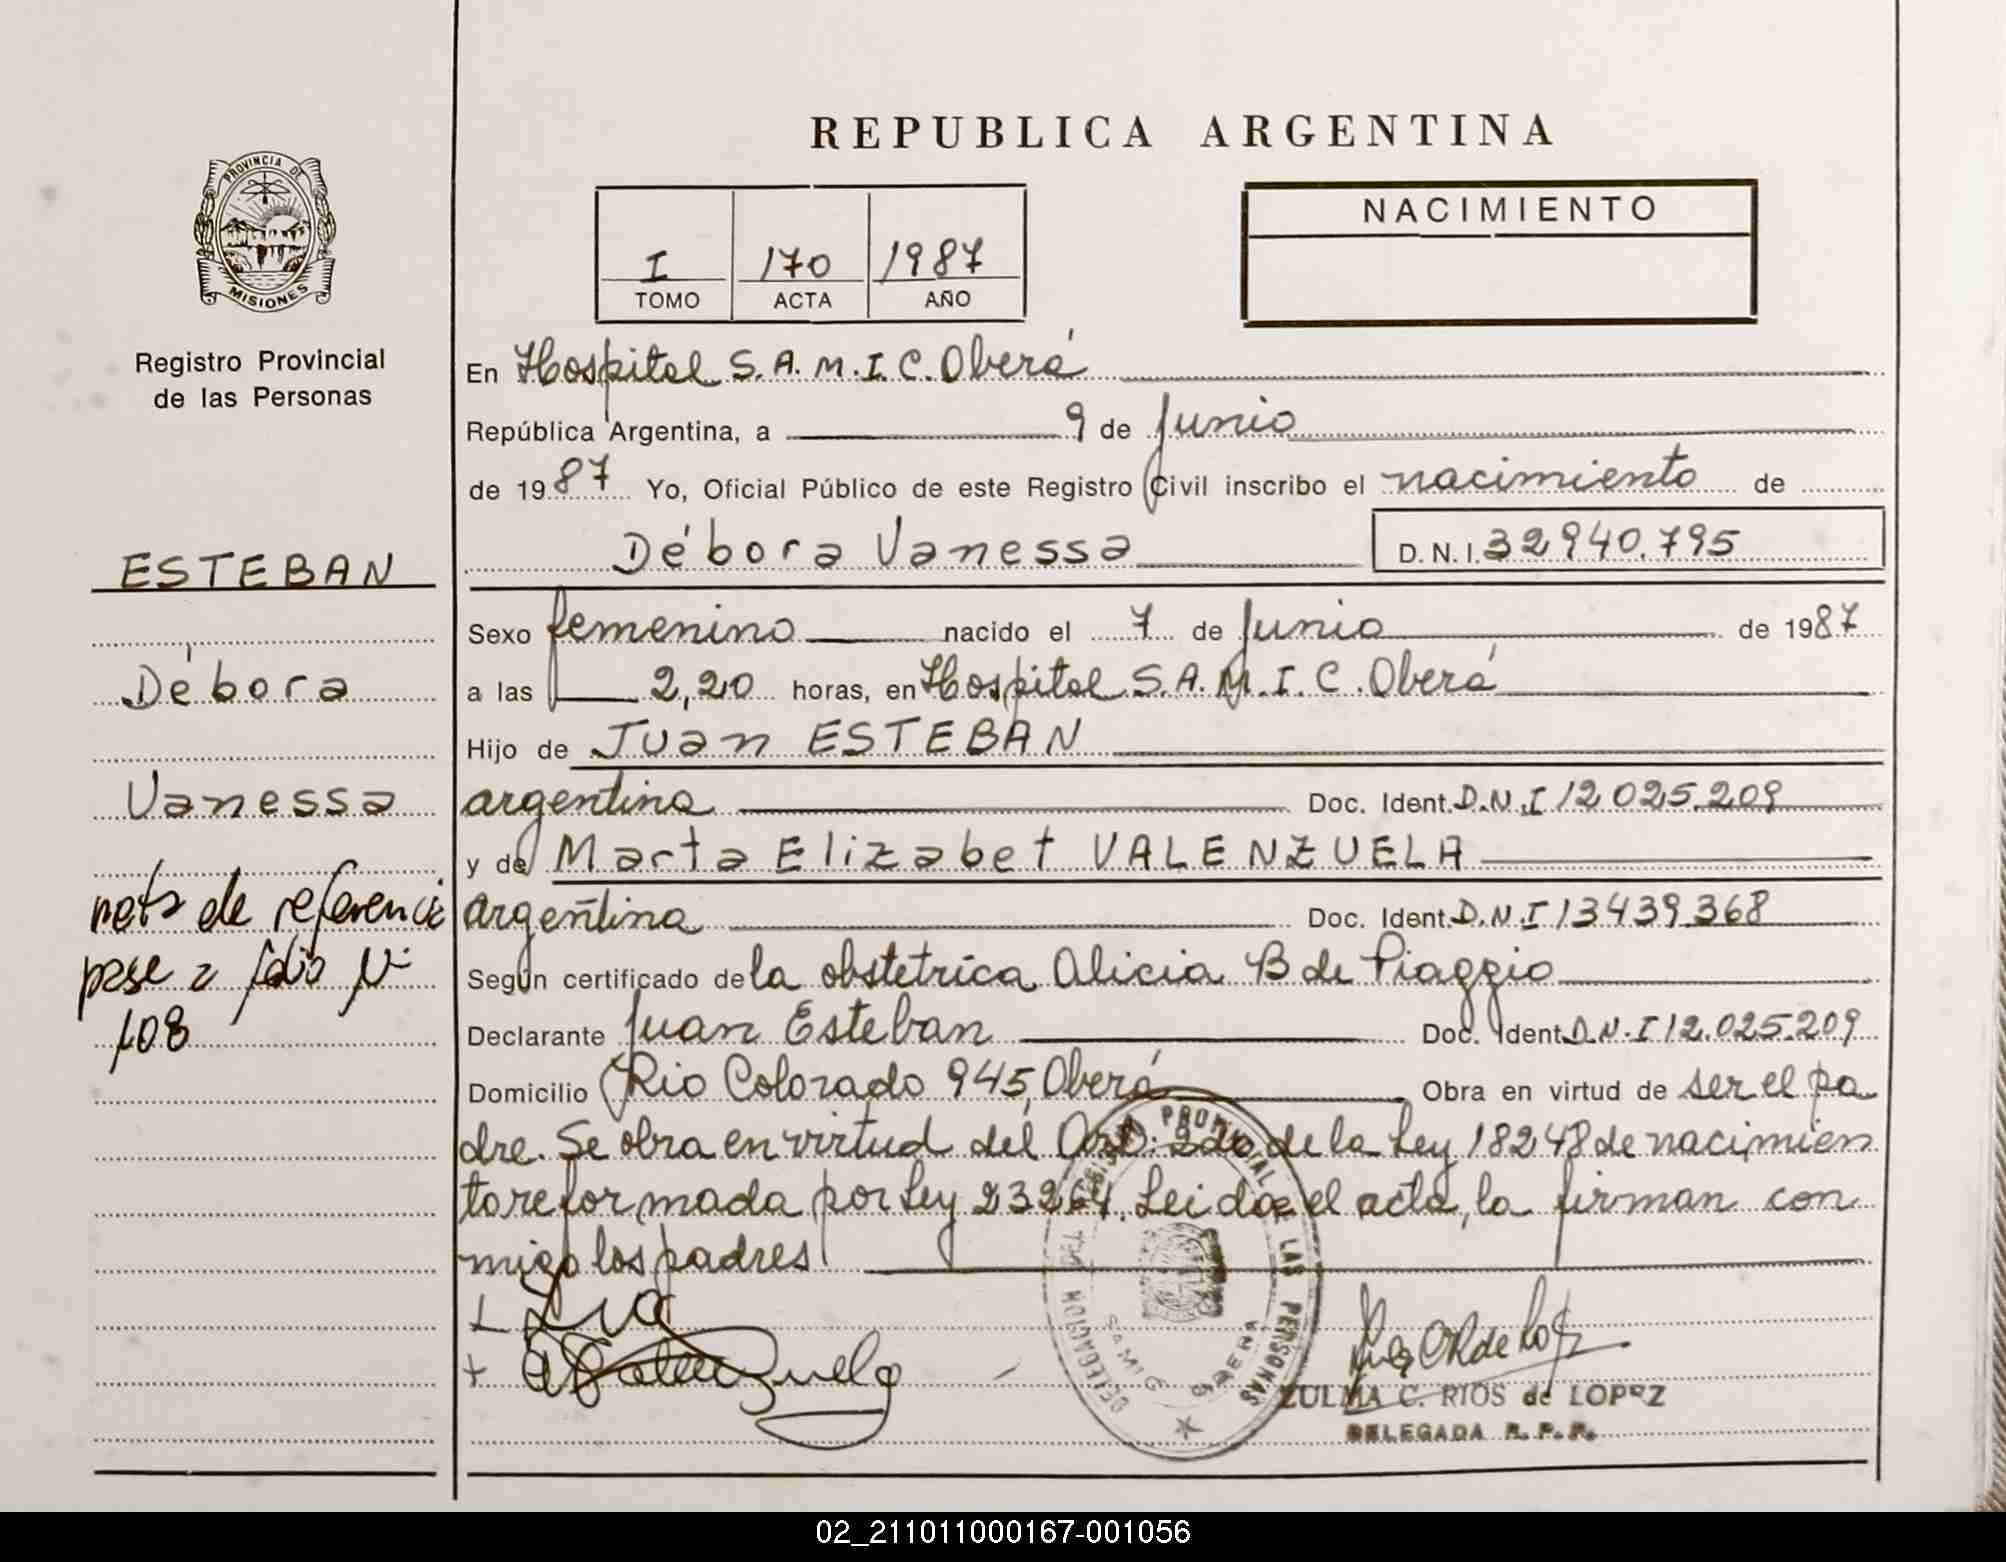 REPUBLICA ARGENTINA
PROVINCIA DE
MISIONES
Registro Provincial
de las Personas
I 170 1987
TOMO ACTA AÑO
NACIMIENTO
En Hospital S.A.M.I.C. Oberá
República Argentina, a 9 de Junio
de 1987 Yo, Oficial Público de este Registro Civil inscribo el nacimiento de
Débora Vanessa D.N.I. 32940.795
ESTEBAN
Débora
Vanessa
nota de referencia
pase a folio Nº
108
Sexo femenino nacido el 7 de Junio de 1987
a las 2,20 horas, en Hospital S.A.M.I.C. Oberá
Hijo de Juan ESTEBAN
argentina Doc. Ident. D.N.I 12025.209
y de Marta Elizabet VALENZUELA
argentina Doc. Ident. D.N.I 13439368
Según certificado de la obstetrica Alicia B de Piaggio
Declarante Juan Esteban Doc. Ident. D.N.I 12.025.209
Domicilio Rio Colorado 945, Oberá Obra en virtud de ser el pa
dre. Se obra en virtud del Art. 2do de la Ley 18248 de nacimien
to reformada por Ley 23264. Leida el acta, la firman con
migo los padres
DELEGACION DEL REGISTRO PROVINCIAL DE LAS PERSONAS
SAMIC OBERA
Valenzuela
ZULMA C. RIOS de LOPEZ
DELEGADA R.P.P.
02_211011000167-001056